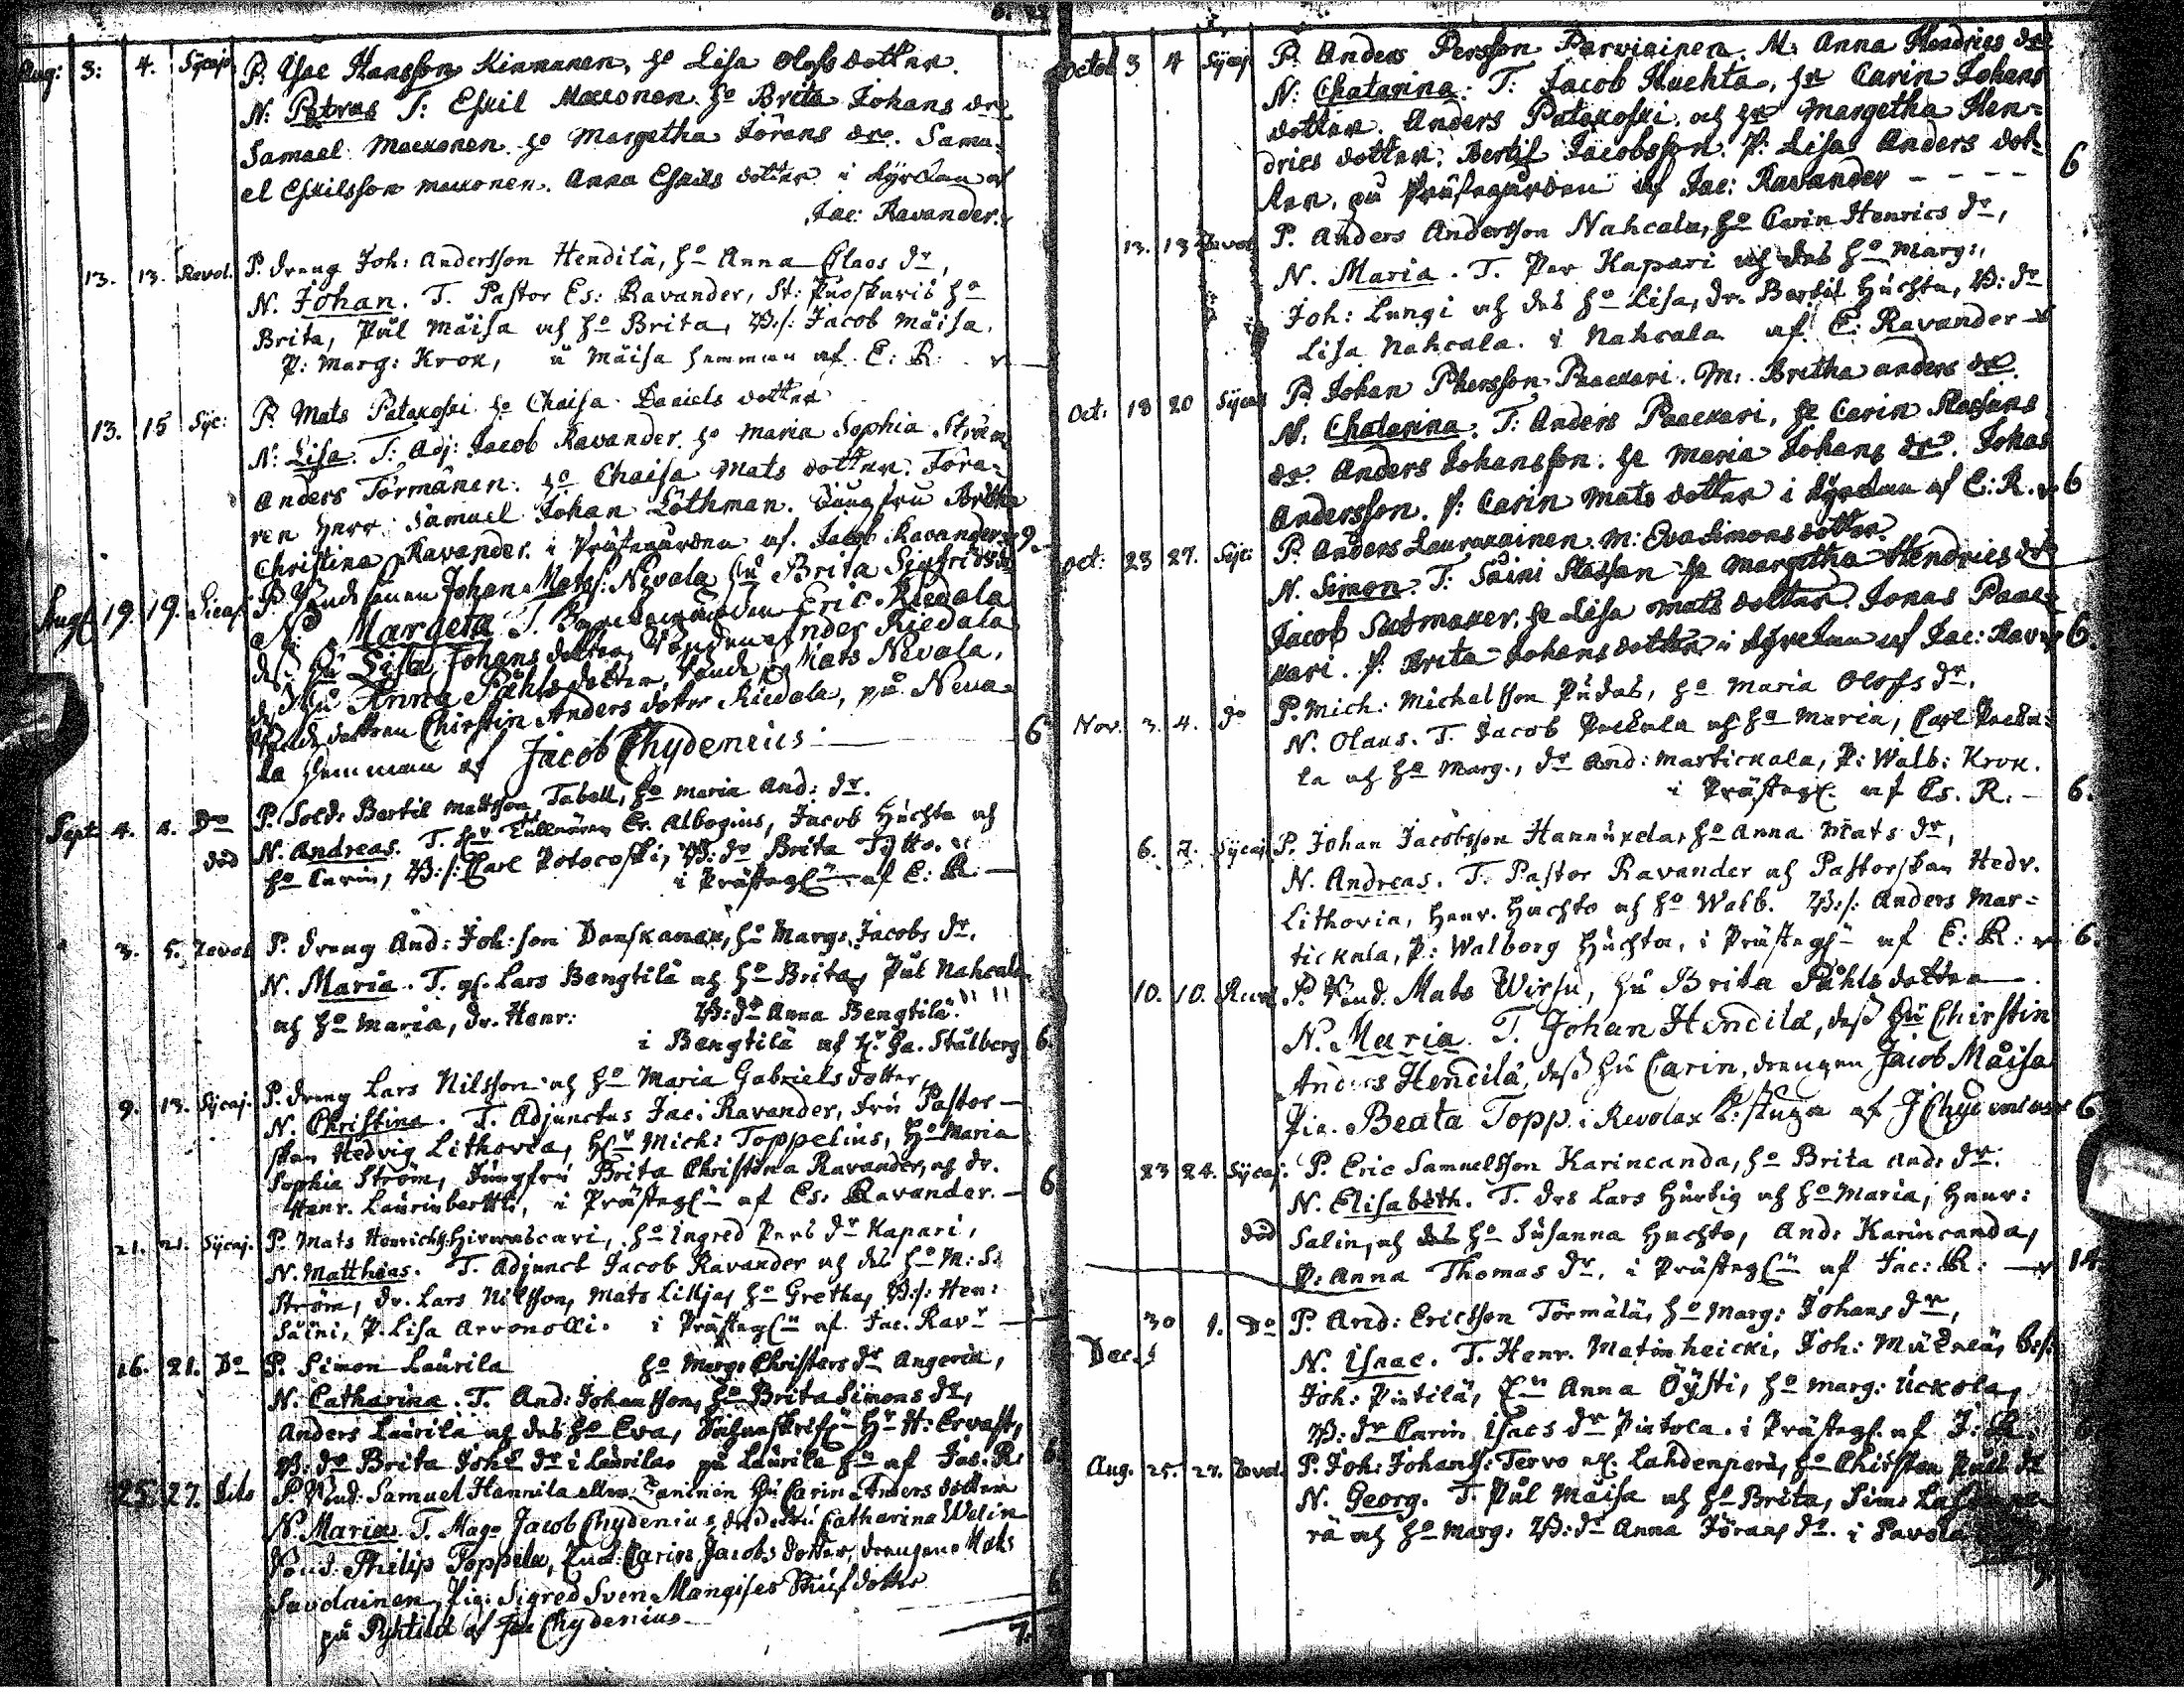 Aug: 3: 4. Sijcajo P. Isac Hansson Kinnunen, ho Lisa Olofs dotter.
N: Petrus T: Eskil Mackonen. ho Brita Johans dr
Samuel Mackonen ho Margetha Jörans dr. Samu-
el Eskilsson Mackonen. Anna Eskils dotter i Kyrckan af
Jac: Ravander.
13. 13. Revol. P. dreng Joh: Andersson Hendilä, ho Anna Claos dr,
N. Johan. T. Pastor Es: Ravander, St: Puoskaris ho
Brita, Pål Mäisa och ho Brita, B:s: Jacob Mäisa,
P: Marg: Krok, å Mäisa hemman af E: R:
13. 15 Syc: P. Mats Patakoski ho Chaisa Daniels dotter
N: Lisa. T: Adj: Jacob Ravander ho Maria Sophia Ström
Anders Törmänen. ho Chaisa Mats dotter.
ren Herr Samuel Johan Löthman. Jungfru Britha
Christina Ravander. i Prästegården af. Jacob Ravander 9.
Aug 19. 19. Sicaj Johan Mats: Nivala hu Brita Sigfrids dr
N: Margeta T. Eric Riedala
dess hu Lisa Johans dotter, Anders Riedala
hu Anna Påhls dotter, Mats Nevala,
Chirstin Anders dotter Riedala, på Neva-
la Hemman af Jacob Chydenius 6
Sept. 4. 4. Do P. Sold: Bertil Mattsson Taball, ho Maria And: dr.
död N. Andreas. T. Er. Alboginus, Jacob Huchta och
ho Carin, B:s: Carl Potocoski, B: dr Brita Tytto.
i Prästeg: af E: R:
3. 5. Revol P. dreng And: Joh: son Danskanen, ho Marg: Jacobs dr.
N. Maria. T. Lars Bengtilä och ho Brita, Pål Nahcala
och ho Maria, dr. Henr: B: dr Anna Bengtilä.
i Bengtilä af H. Ga. Stålberg 6.
9. 13. Sijcaj. P. dreng Lars Nilsson och ho Maria Gabriels dotter
N. Christina. T. Adjunctus Jac: Ravander, Fru Pastor-
skan Hedvig Lithovia, Mich: Toppelius, ho Maria
Sophia Ström, Jungfru Brita Christina Ravander, och dr.
Henr. i Prästeg: af Es: Ravander. 6
21. 21. Sijcaj. P. Mats Henrichs: Hirvascari, ho Ingred Pers dr Kapari,
N. Matthias. T. Adjunct Jacob Ravander och des ho M: S:
Ström, dr. Lars Nilsson, Mats Lilja, ho Gretha, B:s: Hen:
Säini, P. Lisa Arvonolli. i Prästeg: af Jac. Ravr
16. 21. Do P. Simon Laurila ho Marg: Christers dr Angeria,
N. Catharina. T. And: Johansson, ho Brita Simons dr,
Anders Laurila och des ho Eva, H: Ervast,
B: dr Brita Joh: dr i Laurila. på Laurila af Jac. R: 6
25. 27. Dito P. Samuel Hannila eller hu Carin Anders dotter
N. Maria. T. Mag: Jacob Chydenius, Catharina Welin
Philip Toppila, Carin Jacobs dotter, drengen Mats
Savolainen, Pig: Sigred Sven Mångises dotter
på af Jac Chydenius 6
7.
Octob 3 4 Sijcaj P. Anders Persson Parviainen. M: Anna Hendrics dr
N: Chatarina. T: Jacob Huchta, ho Carin Johans
dotter. Anders Patakoski och ho Margetha Hen-
drics dotter. Bertil Jacobsson. P: Lisa Anders dot-
ter, på Prästegården af Jac: Ravander 6
13. 13 Revol P. Anders Andersson Nahcala, ho Carin Henrics dr,
N. Maria. T. Per Kapari och des ho Marg:,
Joh: Lungi och des ho Lisa, dr. Bertil Huchta, B: dr
Lisa Nahcala. i Nahcala af E: Ravander
Oct: 18 20 Sijcaj P. Johan Phersson Paackari. M: Britha Anders dr
N: Chatarina. T: Anders Paackari, ho Carin
dr. Anders Johansson. ho Maria Johans dr. Johan
Andersson. P: Carin Mats dotter i Kyrckan af E: R. 6
Oct: 23 27. Syc: P. Anders Lauraxainen. M: Eva Simons dotter.
N. Simon. T: Säini ho Margetha Hendrics dr
Jacob Sadmaker. ho Lisa Mats dotter. Jonas Paac-
kari. P. Brita Johans dotter i Kyrckan af Jac: Rav 6.
Nov. 3. 4. do P. Mich: Michelsson Pudas, ho Maria Olofs dr.
N. Olaus. T. Jacob Packala och ho Maria, Carl Packa-
la och ho Marg., dr And: Martickala, P: Walb: Krok.
i Prästeg: af Es. R. 6.
6. 7. Sijcaj P. Johan Jacobsson Hannuxela, ho Anna Mats dr,
N. Andreas. T. Pastor Ravander och Pastorskan Hedv.
Lithovia, Henr. Huchta och ho Walb. B:s: Anders Mar-
tickala, P: Walborg Huchta, i Prästeg: af E: R: 6.
10. 10. Revol P. Mats Wirsu, hu Brita Påhls dotter
N. Maria. T. Johan Hendilä, dess hu Chirstin
Anders Hendilä, dess hu Carin, drengen Jacob Mäisa
Pig. Beata Topp. i Revolax af J Chydenius 6
23 24. Sijcaj. P. Eric Samuelsson Karincanda, ho Brita And: dr.
N. Elisabeth. T. Lars Hurtig och ho Maria, Henr:
död Salin, och des ho Susanna Huchta, And: Karincanda,
P: Anna Thomas dr. i Prästeg: af Jac: R: 14.
30 1. Do P. And: Ericsson Törmälä, ho Marg: Johans dr,
Dec. N. Isaac. T. Henr. Matinheicki, Joh:
Joh: Pintilä, Anna Öysti, ho Marg: Uckola,
B: dr Carin Isacs dr Pintola. i Prästeg: af J: R
Aug. 25. 27. Revol. P. Joh: Johans: Tervo Lahdenperä, ho Chirstin Påls dr
N. Georg. T. Pål Mäisa och ho Brita, Sim:
rä och ho Marg: B: dr Anna Jörans dr. i Pavola